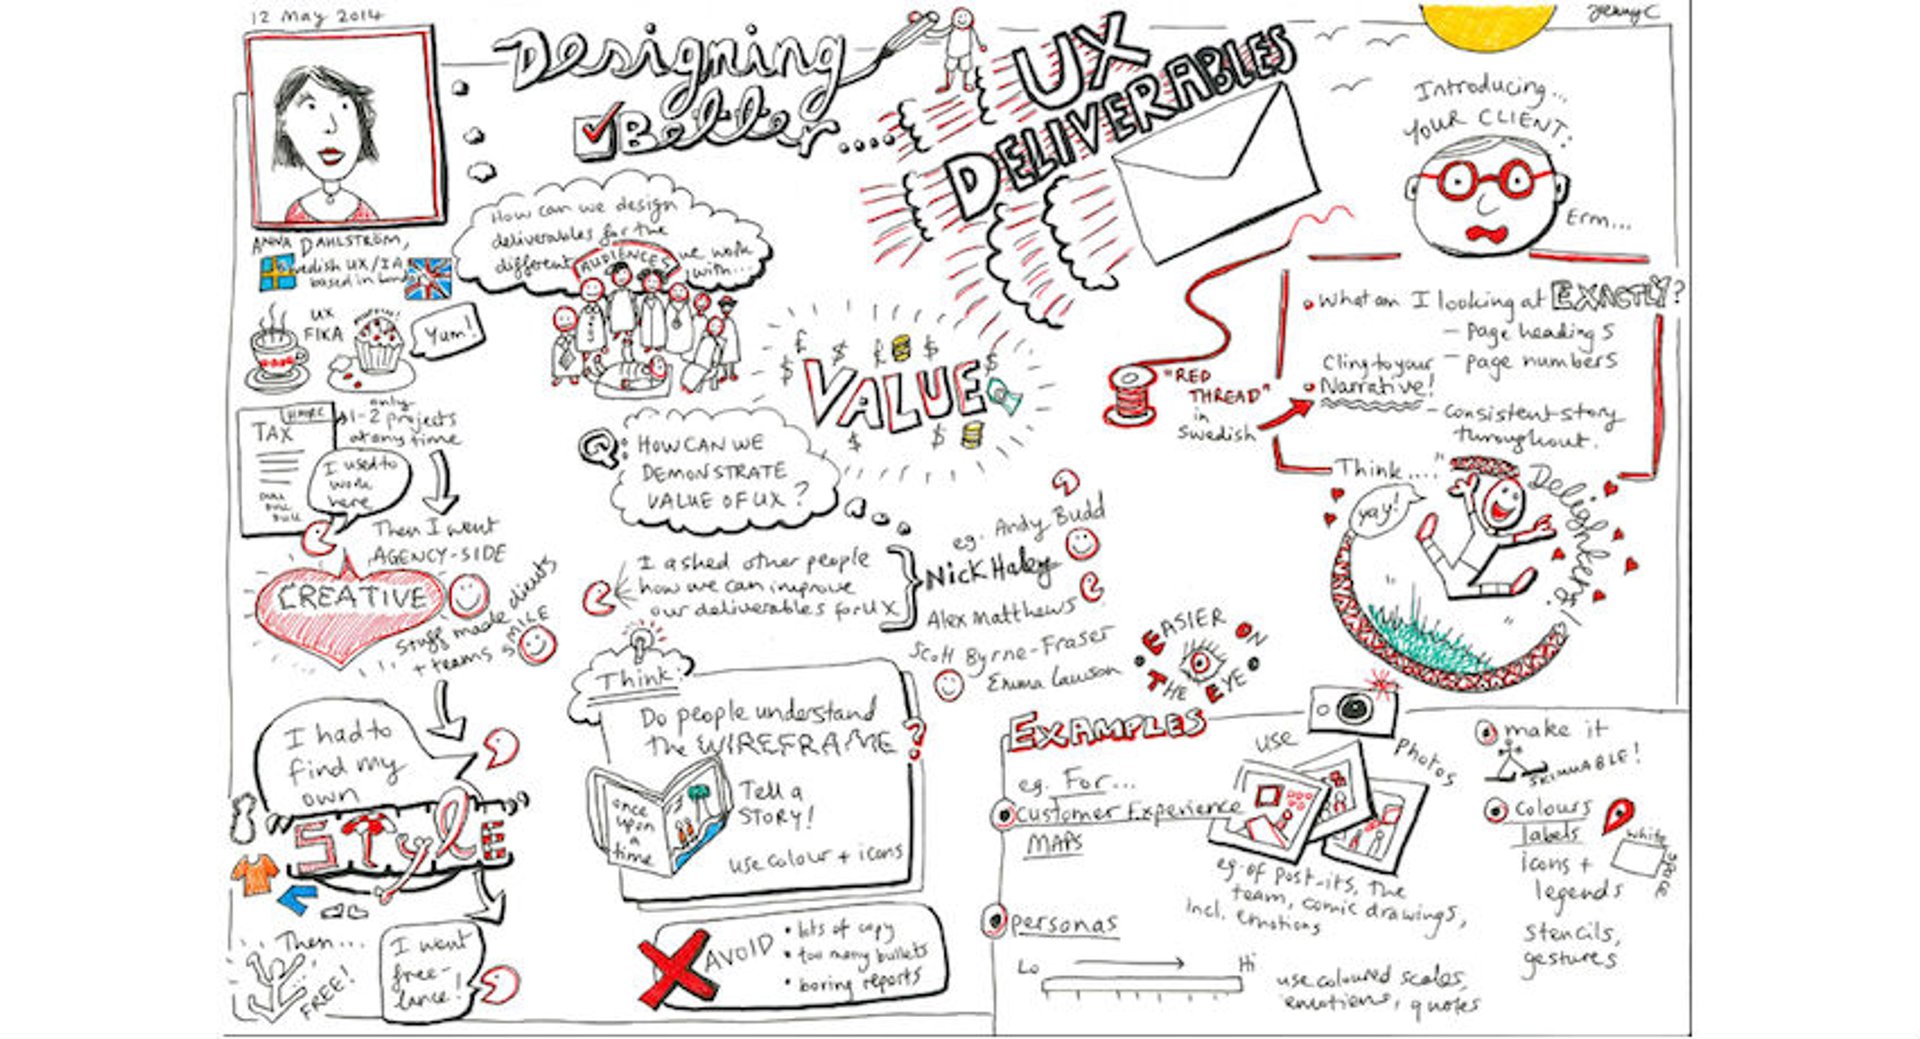 12 May 2014
JennyC
Designing
Better....
UX
DELIVERABLES
ANNA DAHLSTRÖM,
Swedish UX/IA
based in
UX
FIKA
Yum!
HMRC
TAX
only
1-2 projects
at any time
I used to
work
here
DULL
DULL
DULL
Then I went
AGENCY-SIDE
CREATIVE
stuff made clients
+ teams SMILE
I had to
find my
own
STYLE
Then...
FREE!
I went
free-
lance!
How can we design
deliverables for the
different AUDIENCES we work
with...
VALUE
Q: HOW CAN WE
DEMONSTRATE
VALUE OF UX?
I asked other people
how we can improve
our deliverables for UX
eg. Andy Budd
Nick Haley
Alex Matthews
Scott Byrne-Fraser
Emma Lawson
Think:
Do people understand
the WIREFRAME?
once
upon
a
time
Tell a
STORY!
use colour + icons
AVOID
• lots of copy
• too many bullets
• boring reports
Introducing...
YOUR CLIENT.
Erm...
• What am I looking at EXACTLY?
- page headings
- page numbers
• Cling to your
Narrative!
- consistent story
throughout.
"RED
THREAD"
in
Swedish
Think...."
yay!
Delighters!
EASIER ON
THE EYE
EXAMPLES
eg. For...
Customer Experience
MAPS
use
photos
eg. of post-its, the
team, comic drawings,
incl. emotions
personas
Lo
Hi
use coloured scales,
emotions, quotes
make it
SKIMMABLE!
colours
labels
icons +
legends
white
space
stencils,
gestures